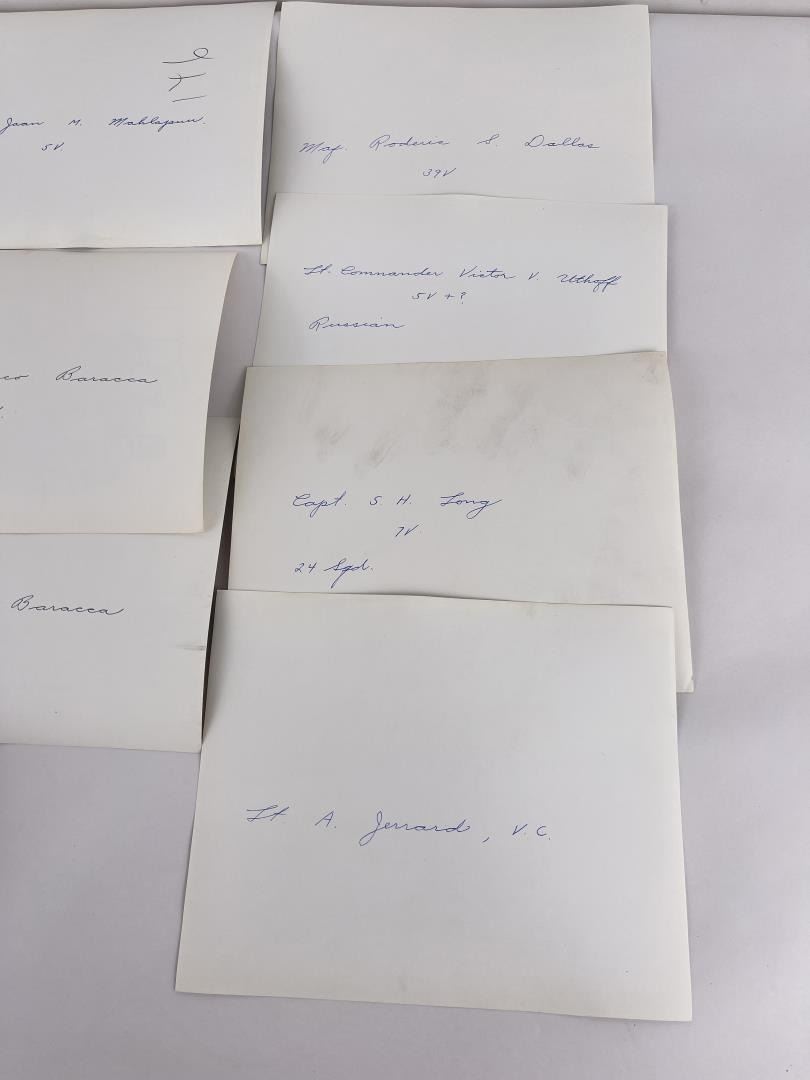 Jaan M. Mahlapuu.
5V.
Baracca
Baracca
Maj. Roderic S. Dallas
39V
Lt. Commander Victor V. Uthoff
5V + ?
Russian
Capt. S. H. Long
7V.
24 Sqd.
Lt. A. Jerrard, V.C.